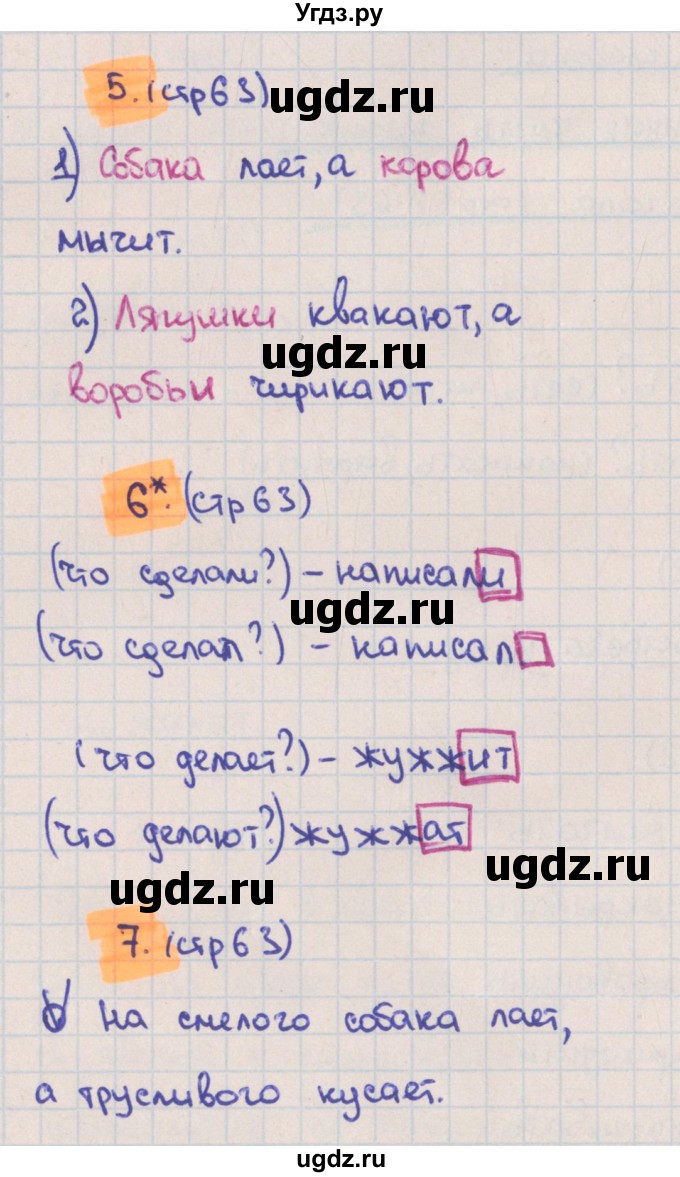 Угдз.ру
5. (стр 63)
ugdz.ru
1) Собака лает, а корова
мычит.
2) Лягушки квакают, а
ugdz.ru
воробьи чирикают.
6*. (стр 63)
(что сделали?) – написали
ugdz.ru
(что сделал?) – написал
(что делает?) – жужжит
(что делают?) жужжат
ugdz.ru
ugdz.ru
7. (стр 63)
На смелого собака лает,
а трусливого кусает.
ugdz.ru